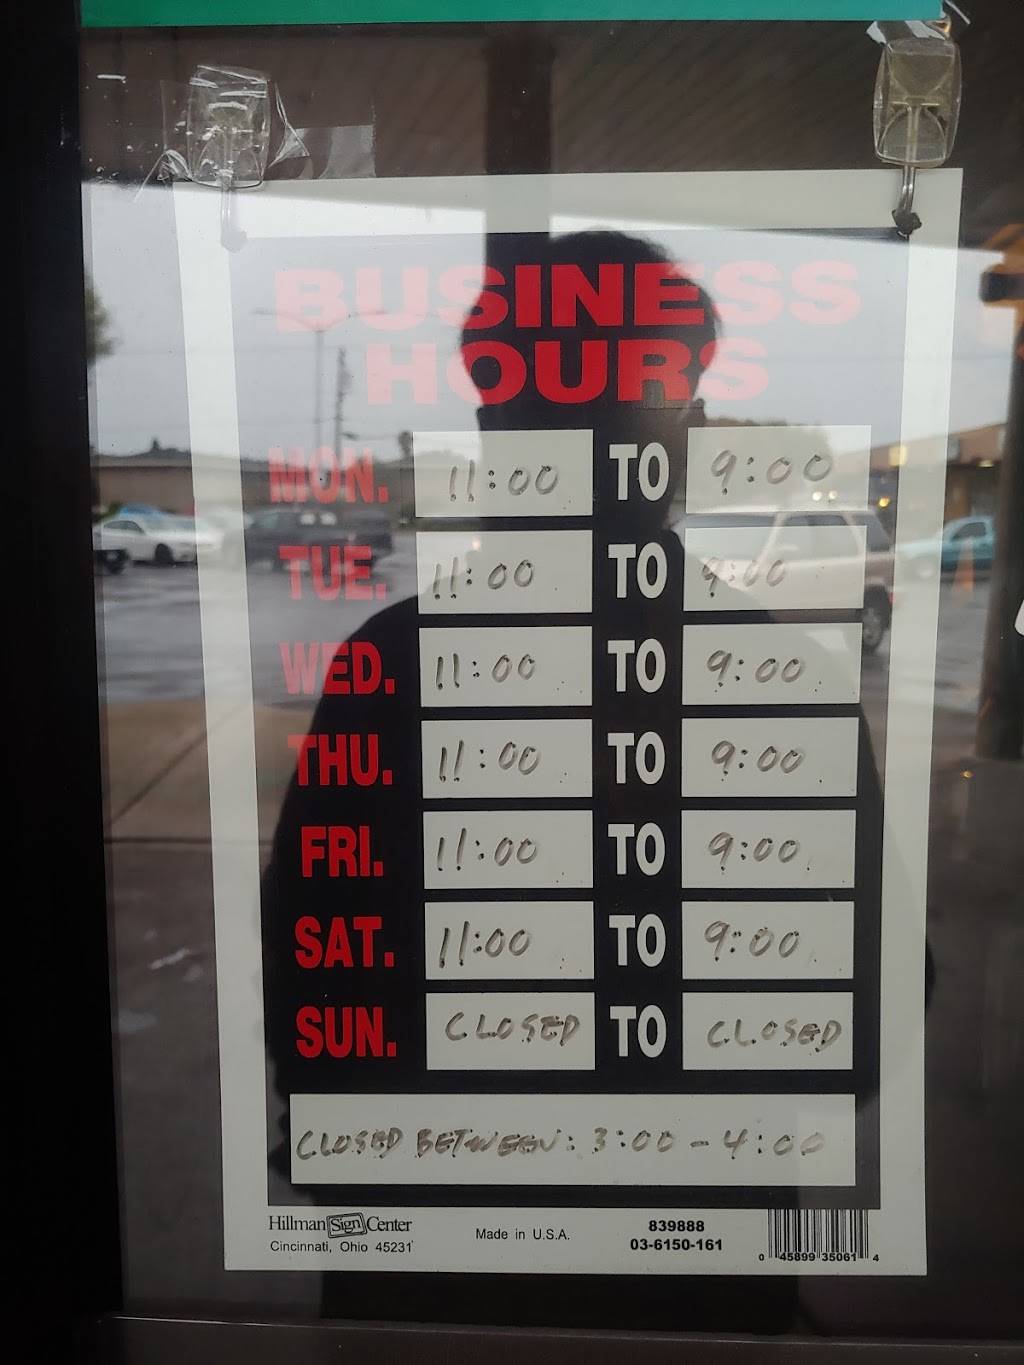 BUSINESS
HOURS
MON. 11:00 TO 9:00
TUE. 11:00 TO 9:00
WED. 11:00 TO 9:00
THU. 11:00 TO 9:00
FRI. 11:00 TO 9:00
SAT. 11:00 TO 9:00
SUN. CLOSED TO CLOSED
CLOSED BETWEEN: 3:00 - 4:00
Hillman Sign Center Made in U.S.A. 839888
Cincinnati, Ohio 45231 03-6150-161 0 45899 35061 4